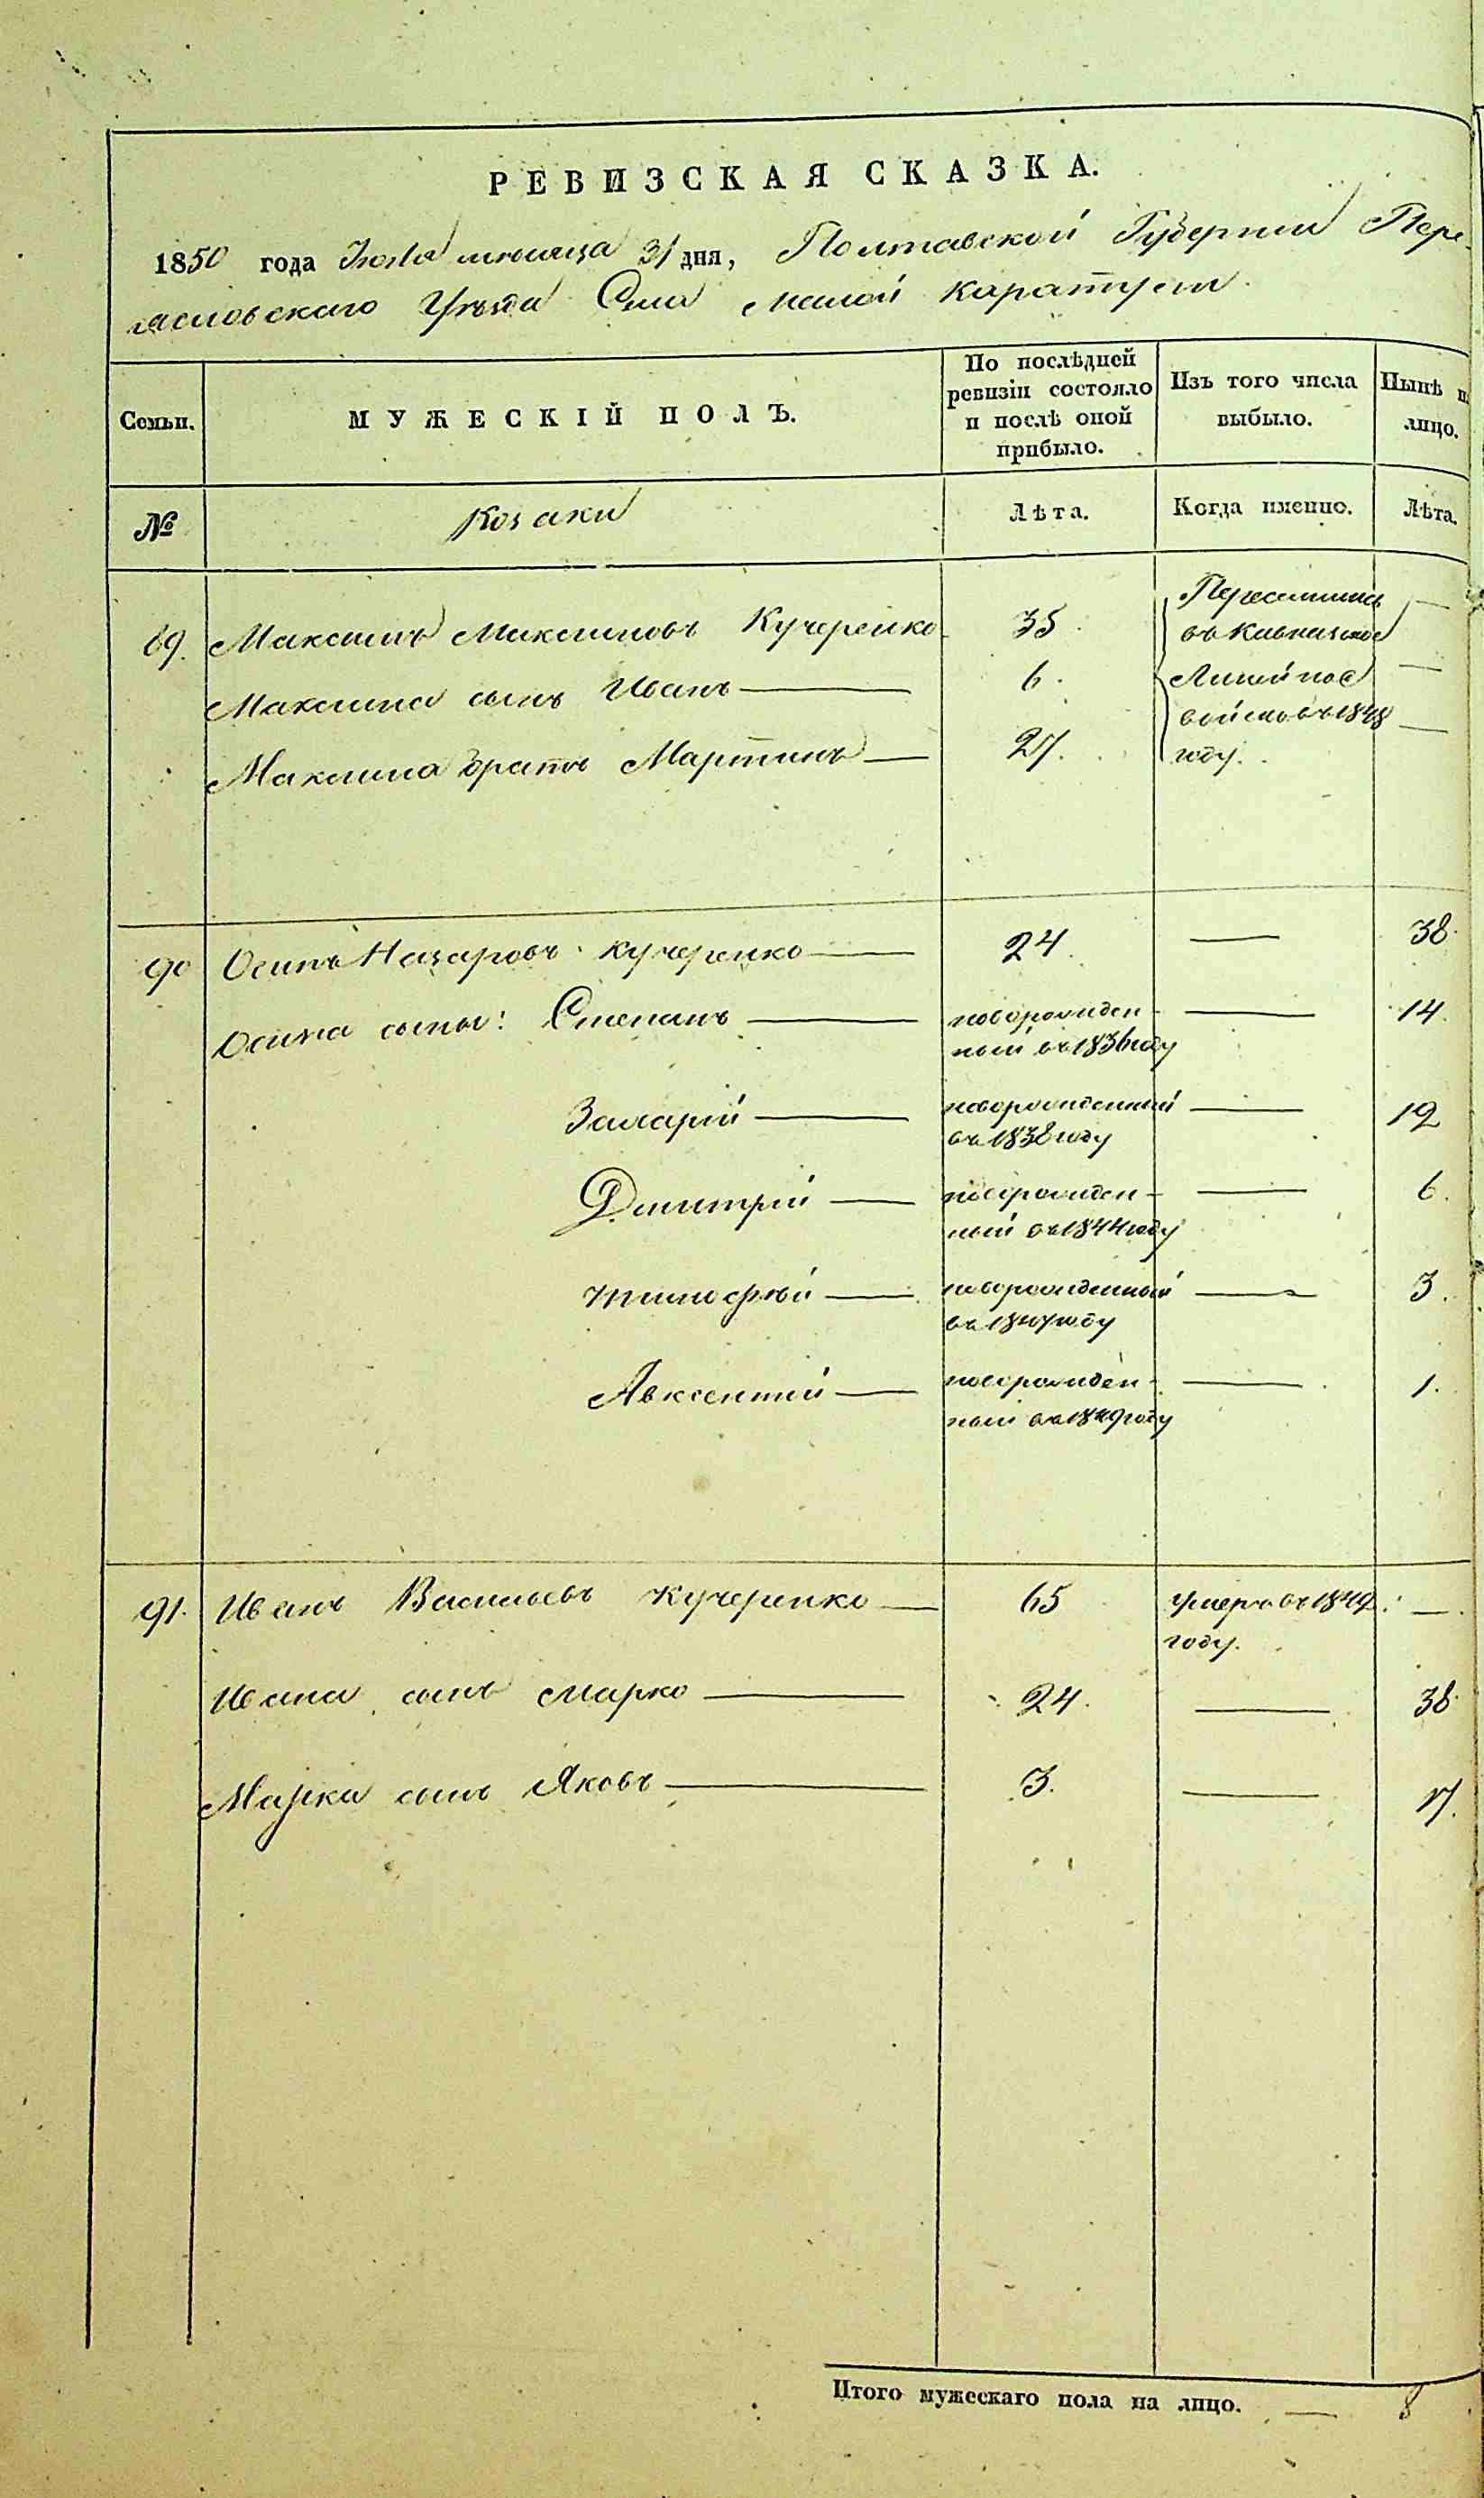 РЕВИЗСКАЯ СКАЗКА.
1850 года Іюля месяца 31 дня, Полтавской Губерніи Пере-
яславскаго Уѣзда Села Малой Каратули.
Семьи.
МУЖЕСКІЙ ПОЛЪ.
По послѣдней
ревизіи состояло
и послѣ оной
прибыло.
Изъ того числа
выбыло.
Нынѣ н
лицо.
№
Козаки
Лѣта.
Когда именно.
Лѣта.
89. Максимъ Максимовъ Кучеренко 35. Переселились —
въ Кавказское
Максима сынъ Иванъ — 6. Линейное —
войско въ 1848 —
Максима братъ Мартинъ — 27. году.
90 Осипъ Назаровъ Кучеренко — 24. — 38.
Осипа сыны: Степанъ — новорожден- — 14.
ный въ 1836 году
Захарій — новорожденный — 12
въ 1838 году
Дмитрій — новорожден- — 6.
ный въ 1844 году
Тимофѣй — новорожденный — 3.
въ 1847 году
Авксентій — новорожден- — 1.
ный въ 1849 году
91. Иванъ Васильевъ Кучеренко — 65 умеръ въ 1849 —.
году.
Ивана сынъ Марко — 24. — 38.
Марка сынъ Яковъ — 3. — 17.
Итого мужескаго пола на лицо. — 8